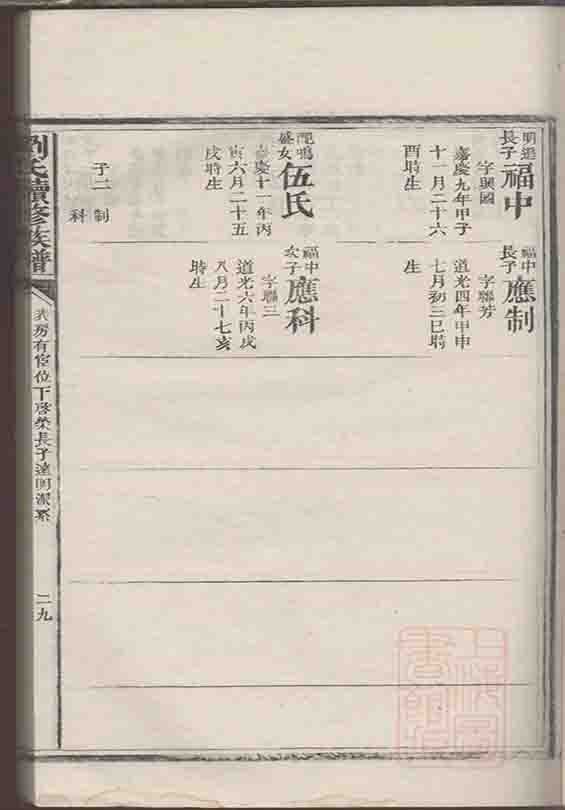 明進長子
福中
字興國
嘉慶九年甲子
十一月二十六
酉時生
配鳴盛女
伍氏
嘉慶十一年丙
寅六月二十五
戌時生
子二
制
科
福中長子
應制
字聯芳
道光四年甲申
七月初三巳時
生
福中次子
應科
字聯三
道光六年丙戌
八月二十七亥
時生
劉氏續修族譜
房有宦位下啓榮長子達明派系
二九